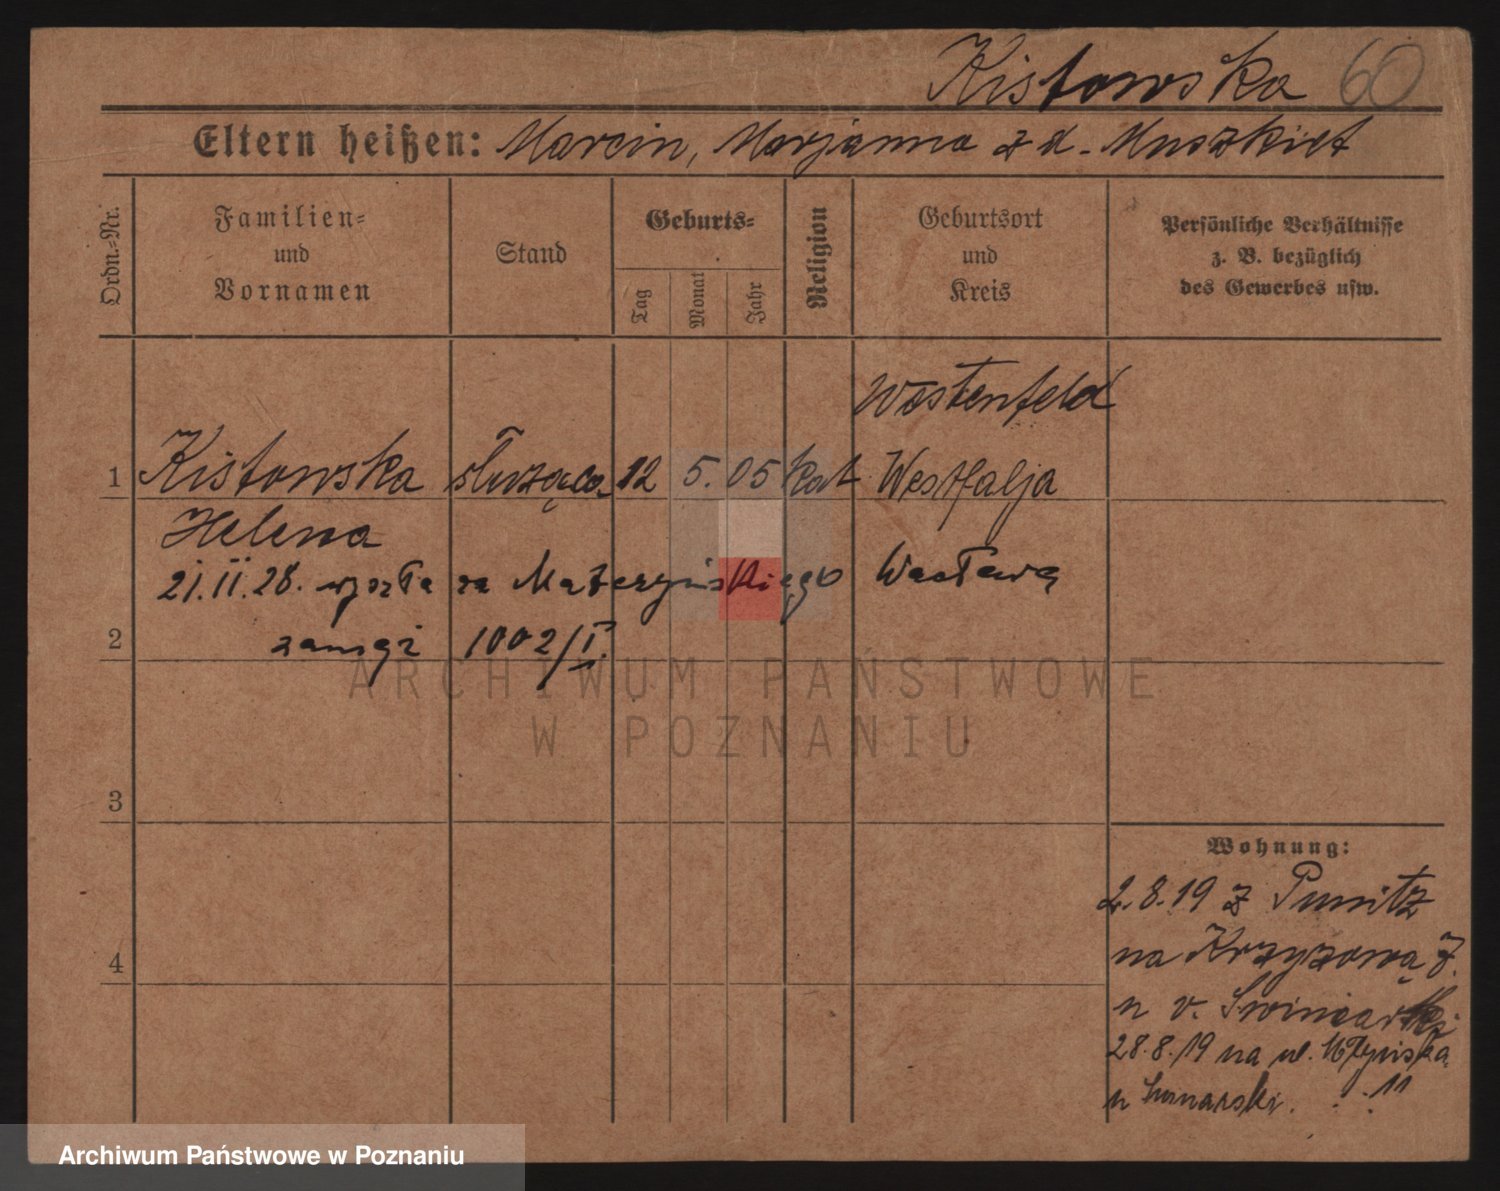 Kistowska 60
Eltern heißen: Marcin, Marjanna z d. Muszkiet
Ordn.-Nr.
Familien- und Vornamen
Stand
Geburts-
Tag
Monat
Jahr
Religion
Geburtsort und Kreis
Persönliche Verhältnisse z. B. bezüglich des Gewerbes usw.
Wästenfeld
1 Kistowska służąca 12 5. 05 kat Westfalja
Helena
21.II.28. wyszła za Matczyńskiego Wacława
2 zamąż 1002/I.
3
4
Wohnung:
2.8.19 z Punitz
na Krzyżową 7.
u v. Swiniarski
28.8.19 na ul. Młyńską
11
u
ARCHIWUM PAŃSTWOWE
W POZNANIU
Archiwum Państwowe w Poznaniu